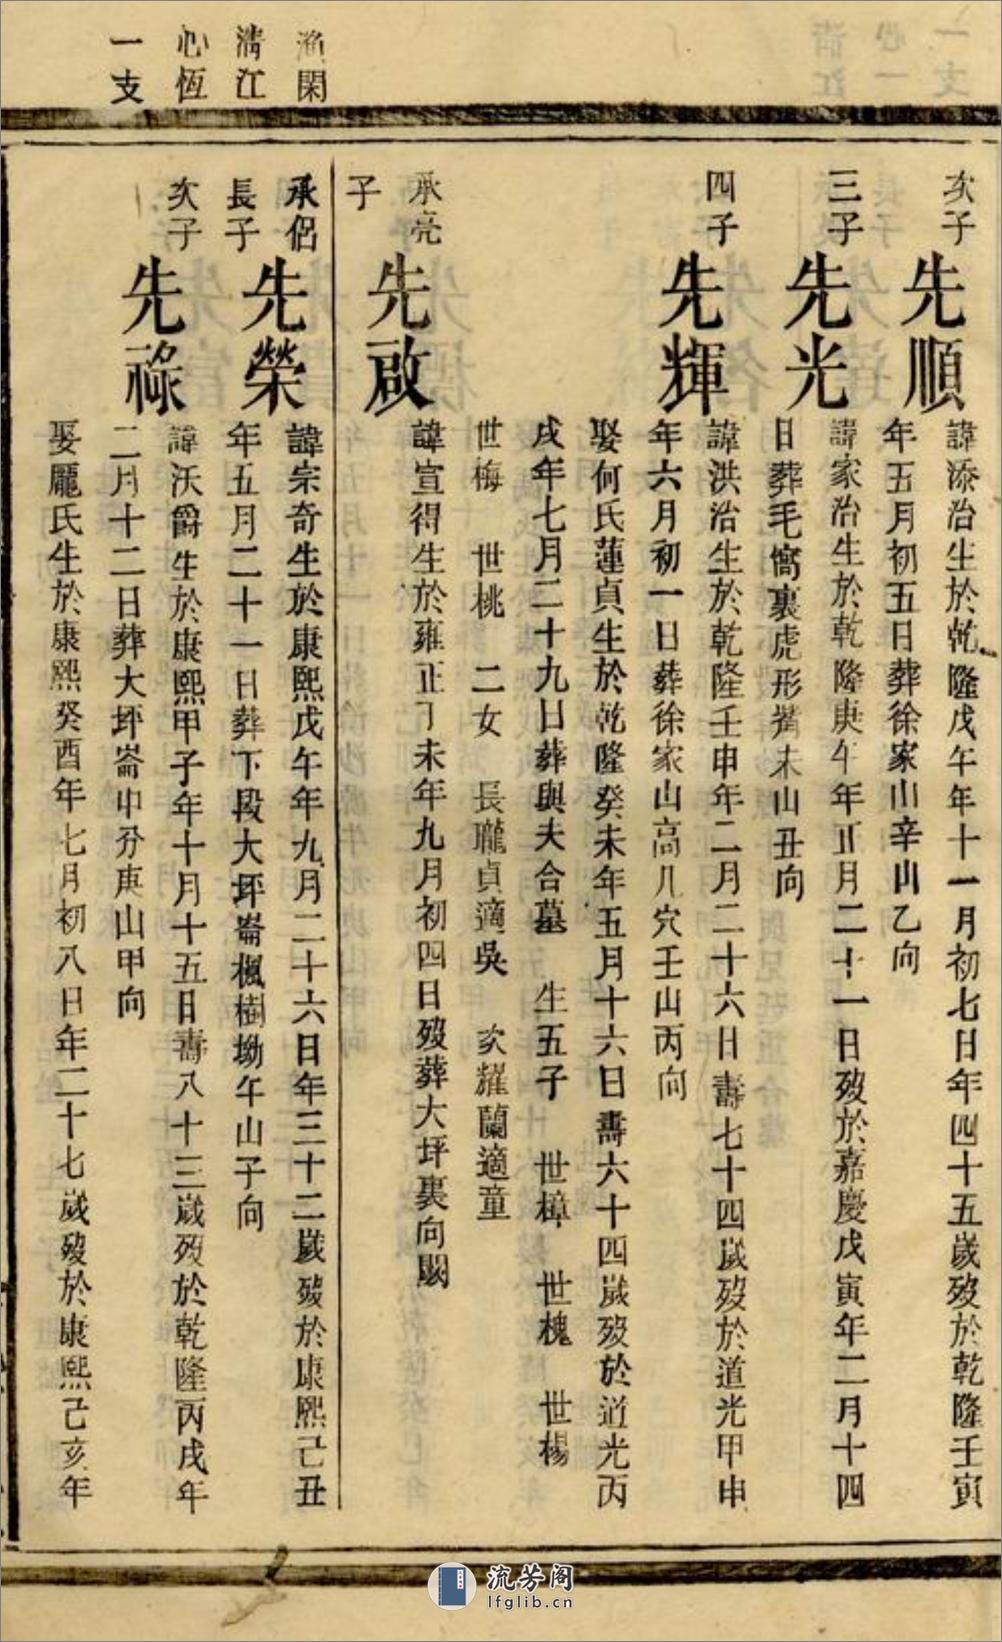 漁閑
清江
心恆
一支
次子
先順
諱添治生於乾隆戊午年十一月初七日年四十五歲歿於乾隆壬寅
年五月初五日葬徐家山辛山乙向
三子
先光
諱家治生於乾隆庚午年正月二十一日歿於嘉慶戊寅年二月十四
日葬毛窩裏虎形嘴未山丑向
四子
先輝
諱洪治生於乾隆壬申年二月二十六日壽七十四歲歿於道光甲申
年六月初一日葬徐家山高儿穴壬山丙向
娶何氏蓮貞生於乾隆癸未年五月十六日壽六十四歲歿於道光丙
戌年七月二十九日葬與夫合墓 生五子 世樟 世槐 世楊
世梅 世桃 二女 長瓏貞適吳 次耀蘭適童
承亮
子
先啟
諱宣得生於雍正丁未年九月初四日歿葬大坪裏向闕
承侶
長子
先榮
諱宗奇生於康熙戊午年九月二十六日年三十二歲歿於康熙己丑
年五月二十一日葬下段大坪崙楓樹坳午山子向
次子
先祿
諱沃爵生於康熙甲子年十月十五日壽八十三歲歿於乾隆丙戌年
二月十二日葬大坪崙中分庚山甲向
娶龎氏生於康熙癸酉年七月初八日年二十七歲歿於康熙己亥年
流芳阁
lfglib.cn